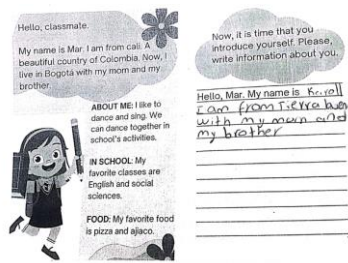 Hello, classmate.
My name is Mar. I am from cali. A
beautiful country of Colombia. Now, I
live in Bogotá with my mom and my
brother.
ABOUT ME: I like to
dance and sing. We
can dance together in
school's activities.
IN SCHOOL: My
favorite classes are
English and social
sciences.
FOOD: My favorite food
is pizza and ajiaco.
Now, it is time that you
introduce yourself. Please,
write information about you.
Hello, Mar. My name is
I am from
with my mom and
my brother